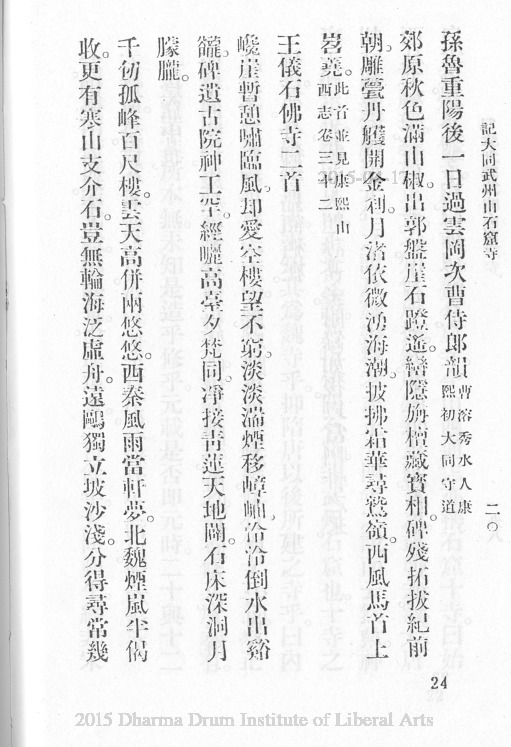 記大同武州山石窟寺
二〇
孫魯重陽後一日過雲岡次曹侍郎韻曹溶秀水人康熙初大同守道
郊原秋色滿山椒。出郭盤崖石蹬遙。巒隱旃檀藏寶相。碑殘拓拔紀前
朝。雕甍丹雘開金刹。月渚依微湧海潮。披拂霜華尋鷲嶺。西風馬首上
岧嶤。此首並見康熙山西志卷三十二
王儀石佛寺二首
巉崖暫憩嘯臨風。却愛空樓望不窮。淡淡濡煙移嶂岫。泠泠倒水出谿
籠。碑遺古院神工罕。經曬高臺夕梵同。淨接青蓮天地闊。石床深洞月
朦朧。
千仞孤峰百尺樓。雲天高併兩悠悠。西秦風雨當軒夢。北魏煙嵐半偈
收。更有寒山支介石。豈無輪海泛虛舟。遠鷗獨立坡沙淺。分得尋常幾
24
2015 Dharma Drum Institute of Liberal Arts